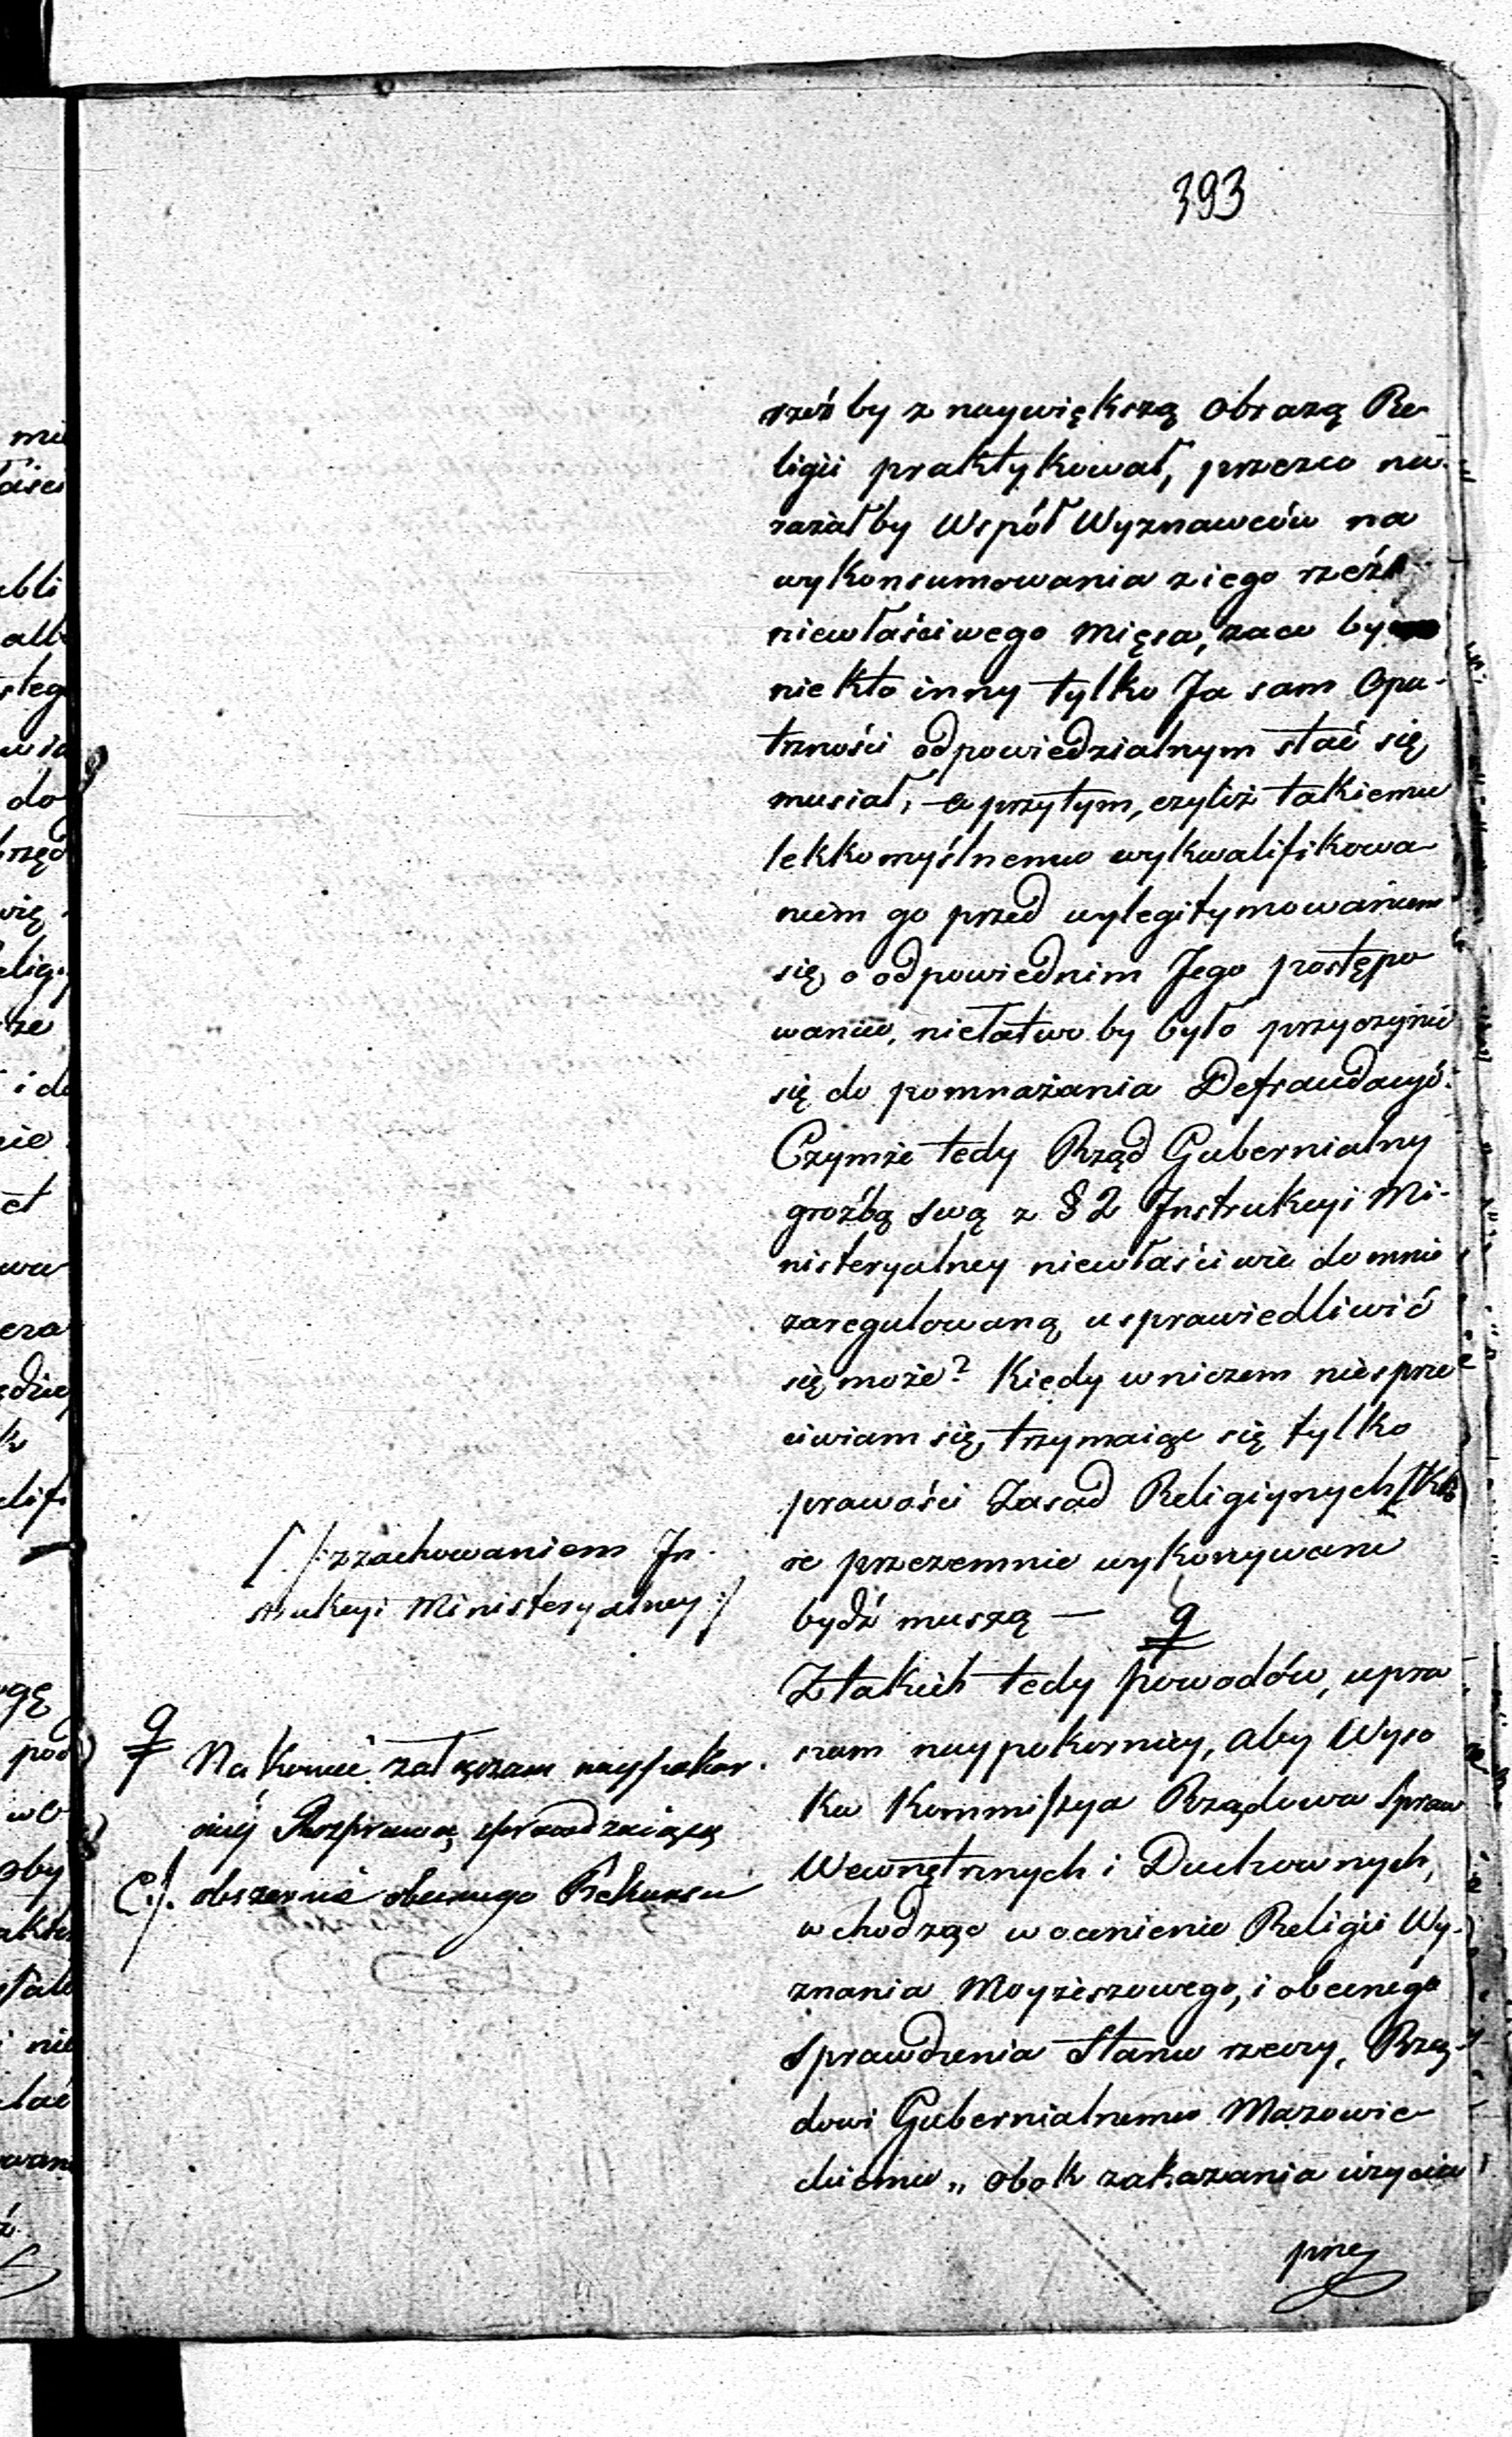 393
rzeźby z naywiększą obrazą Re
ligii praktykował, przezco na
rażałby Współ Wyznawców na
wykonsumowania ziego rzeźi
niewłaściwego mięsa, zaco by
niekto inny tylko Ja sam Opa-
trzności odpowiedzialnym stać się
musiał, a przytym, czyliż takiemu
lekkomyślnemu wykwalifikowa
niem go przed wylegitymowaniem
się o odpowiednim Jego postępo
waniu, niełatwo by było przyczynić
się do pomnażania Defraudacyi.
Czymże tedy Rząd Gubernialny
groźbą swą z § 2 Instrukcyi Mi-
nisteryalney niewłaściwie do mnie
zaregulowaną usprawiedliwić
się może? Kiedy wniczem niesprze
ciwiam się, trzymaiąc się tylko
prawości Zasad Religiynych [któ
re przezemnie wykonywane
bydź muszą —
[./: zzachowaniem In-
strukcyi Ministeryalney :/
Ztakich tedy powodów, upra
szam naypokorniey, aby Wyso
ka Kommissya Rządowa Spraw
Wewnętrznych i Duchownych,
wchodząc w ocenienie Religii Wy-
znania Moyżeszowego, i obecnego
Sprawdzenia Stanu rzeczy, Rzą-
dowi Gubernialnemu Mazowie
ckiemu „ obok zakazania użycia
Nakoniec załączam naypokor-
niey Rozprawę sprawdzaiącą
C./. obszernie obecnego Rekursu
przy